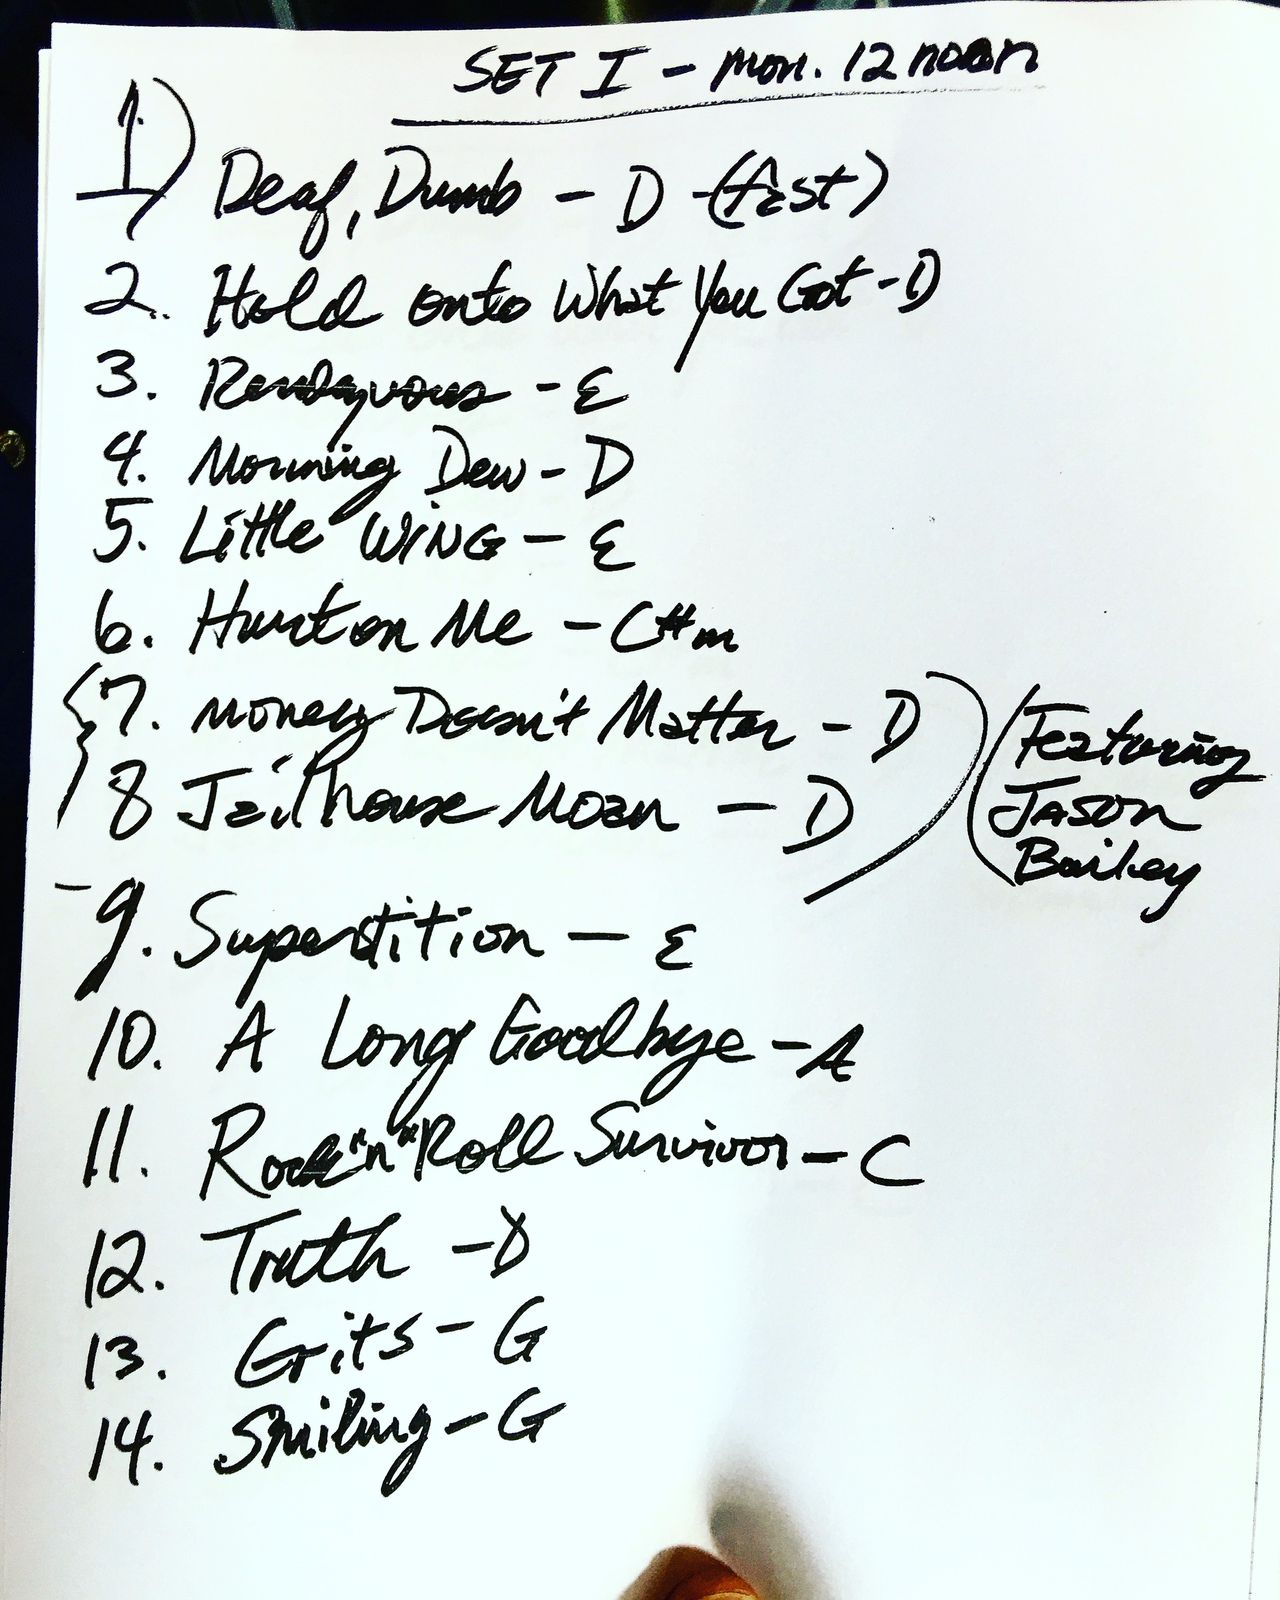 SET I - Mon. 12 noon
1) Deaf, Dumb - D - (fast)
2. Hold onto What You Got - D
3. Rendezvous - E
4. Morning Dew - D
5. Little WING - E
6. Hurt on Me - C#m
7. Money Doesn't Matter - D
8 Jailhouse Moan - D
(Featuring
JASON
Bailey
9. Superstition - E
10. A Long Goodbye - A
11. Rock "n" Roll Survivor - C
12. Truth - D
13. Grits - G
14. Smiling - G